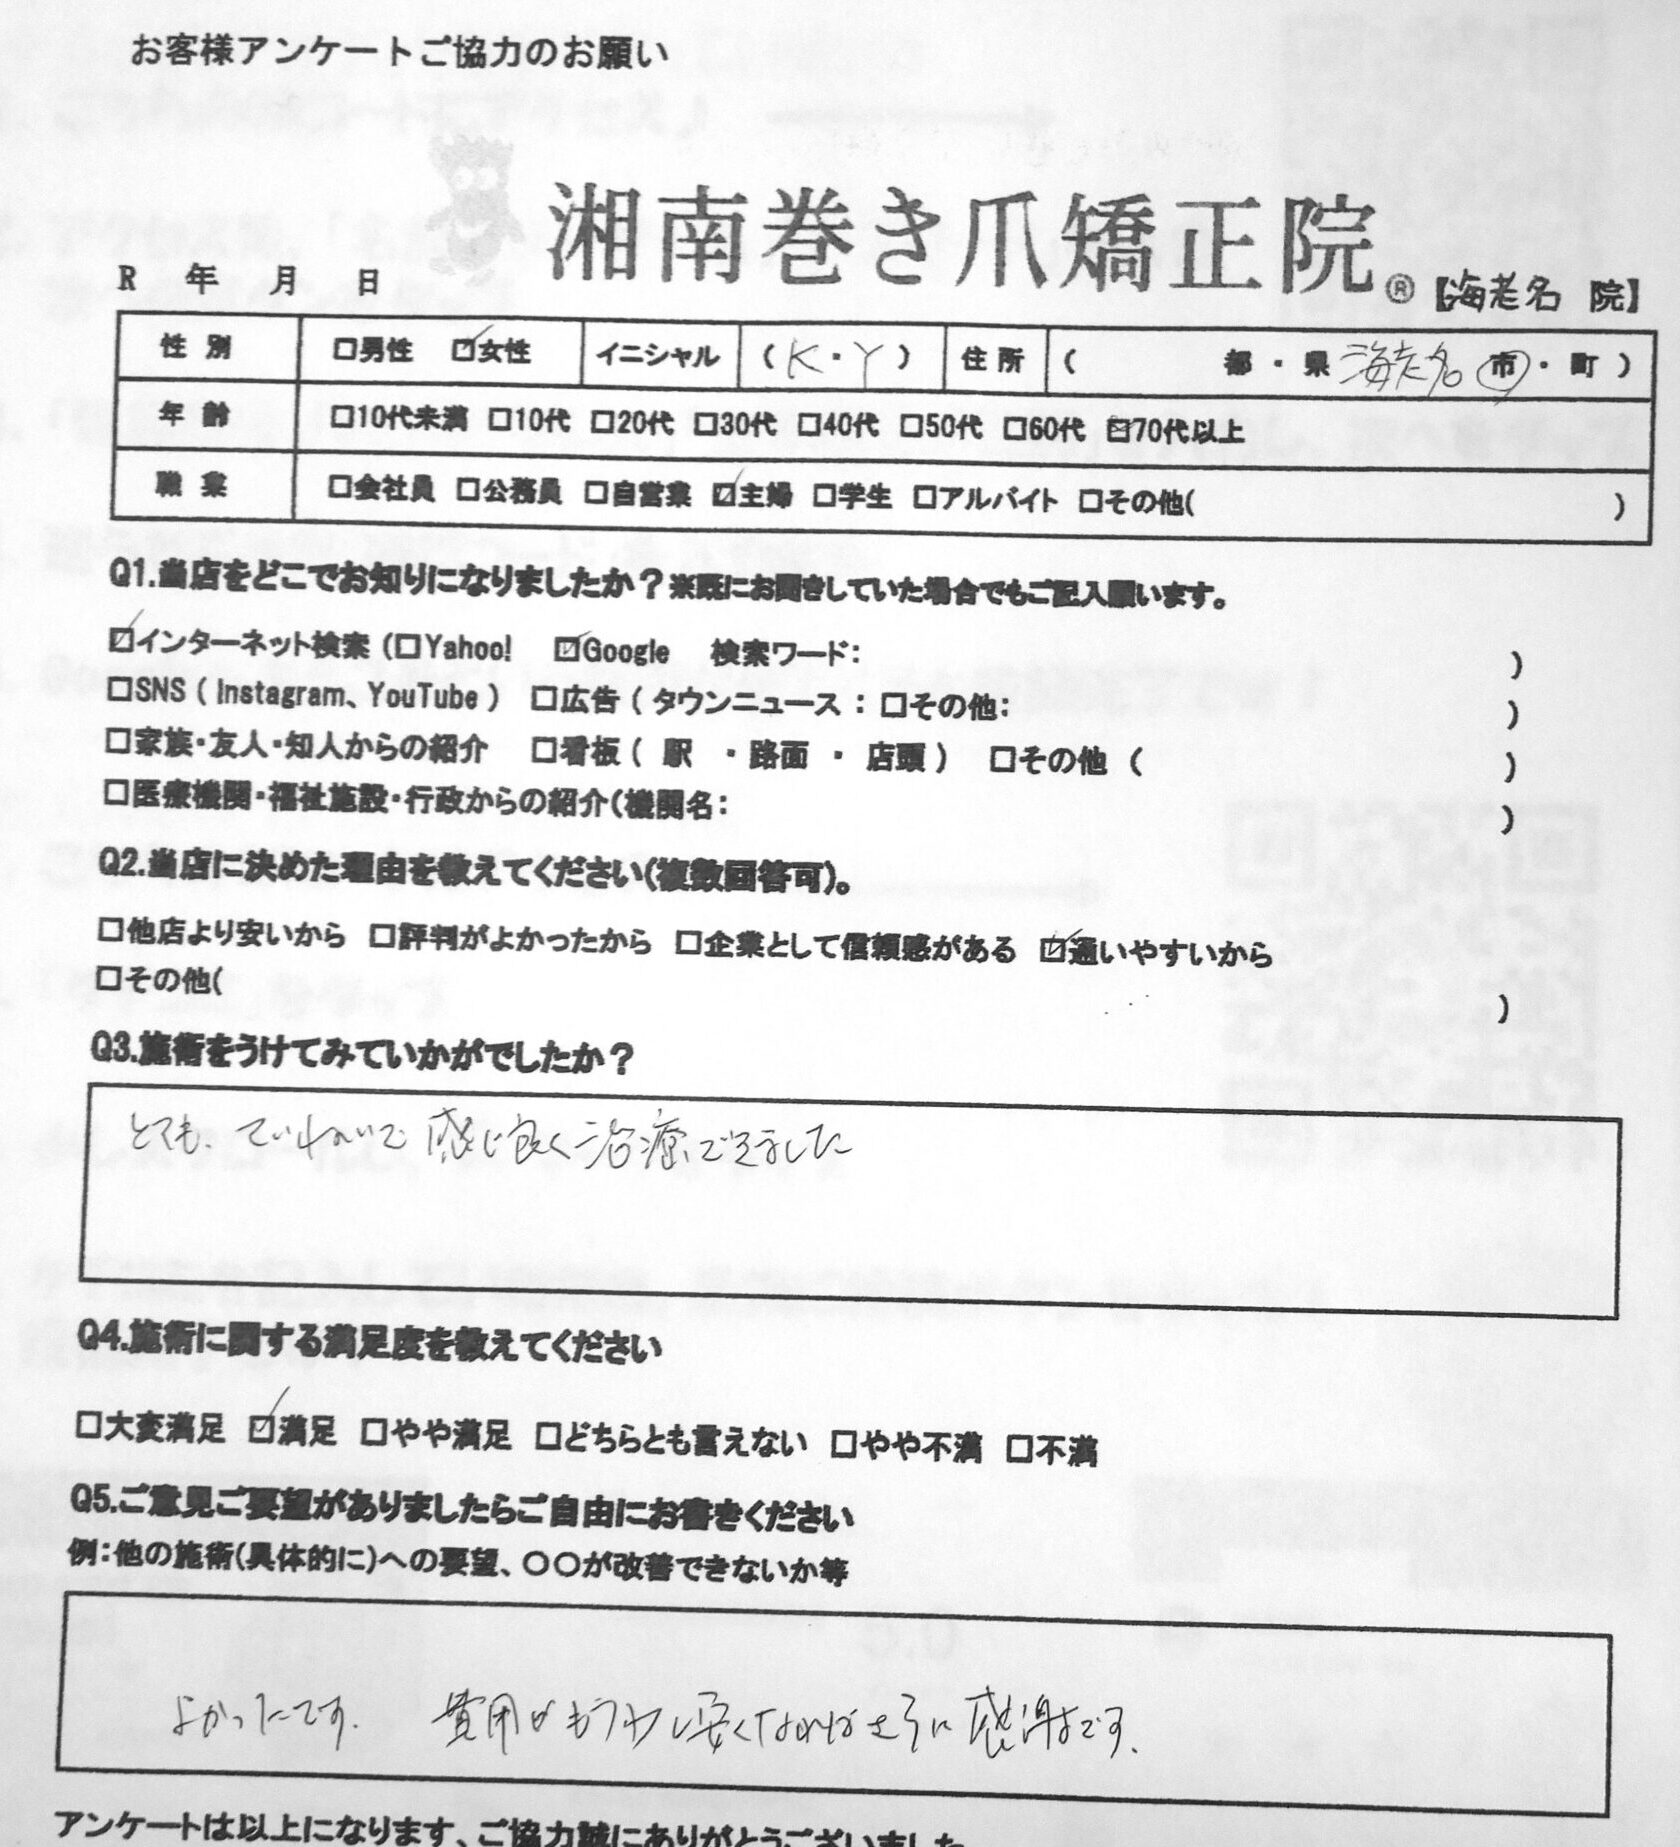 お客様アンケートご協力のお願い
湘南巻き爪矯正院®【海老名 院】
R 年 月 日
性別 □男性 ☑女性 イニシャル (K・Y) 住所 ( 都・県 海老名 市・町 )
年齢 □10代未満 □10代 □20代 □30代 □40代 □50代 □60代 ☑70代以上
職業 □会社員 □公務員 □自営業 ☑主婦 □学生 □アルバイト □その他( )
Q1.当店をどこでお知りになりましたか?※既にお聞きしていた場合でもご記入願います。
☑インターネット検索 (□Yahoo! ☑Google 検索ワード: )
□SNS ( Instagram、YouTube ) □広告 ( タウンニュース : □その他: )
□家族・友人・知人からの紹介 □看板 ( 駅 ・路面 ・ 店頭 ) □その他 ( )
□医療機関・福祉施設・行政からの紹介(機関名: )
Q2.当店に決めた理由を教えてください(複数回答可)。
□他店より安いから □評判がよかったから □企業として信頼感がある ☑通いやすいから
□その他( )
Q3.施術をうけてみていかがでしたか?
とても、ていねいで感じ良く治療できました
Q4.施術に関する満足度を教えてください
□大変満足 ☑満足 □やや満足 □どちらとも言えない □やや不満 □不満
Q5.ご意見ご要望がありましたらご自由にお書きください
例:他の施術(具体的に)への要望、〇〇が改善できないか等
よかったです. 費用がもう少し安くなれば さらに感謝です.
アンケートは以上になります、ご協力誠にありがとうございました